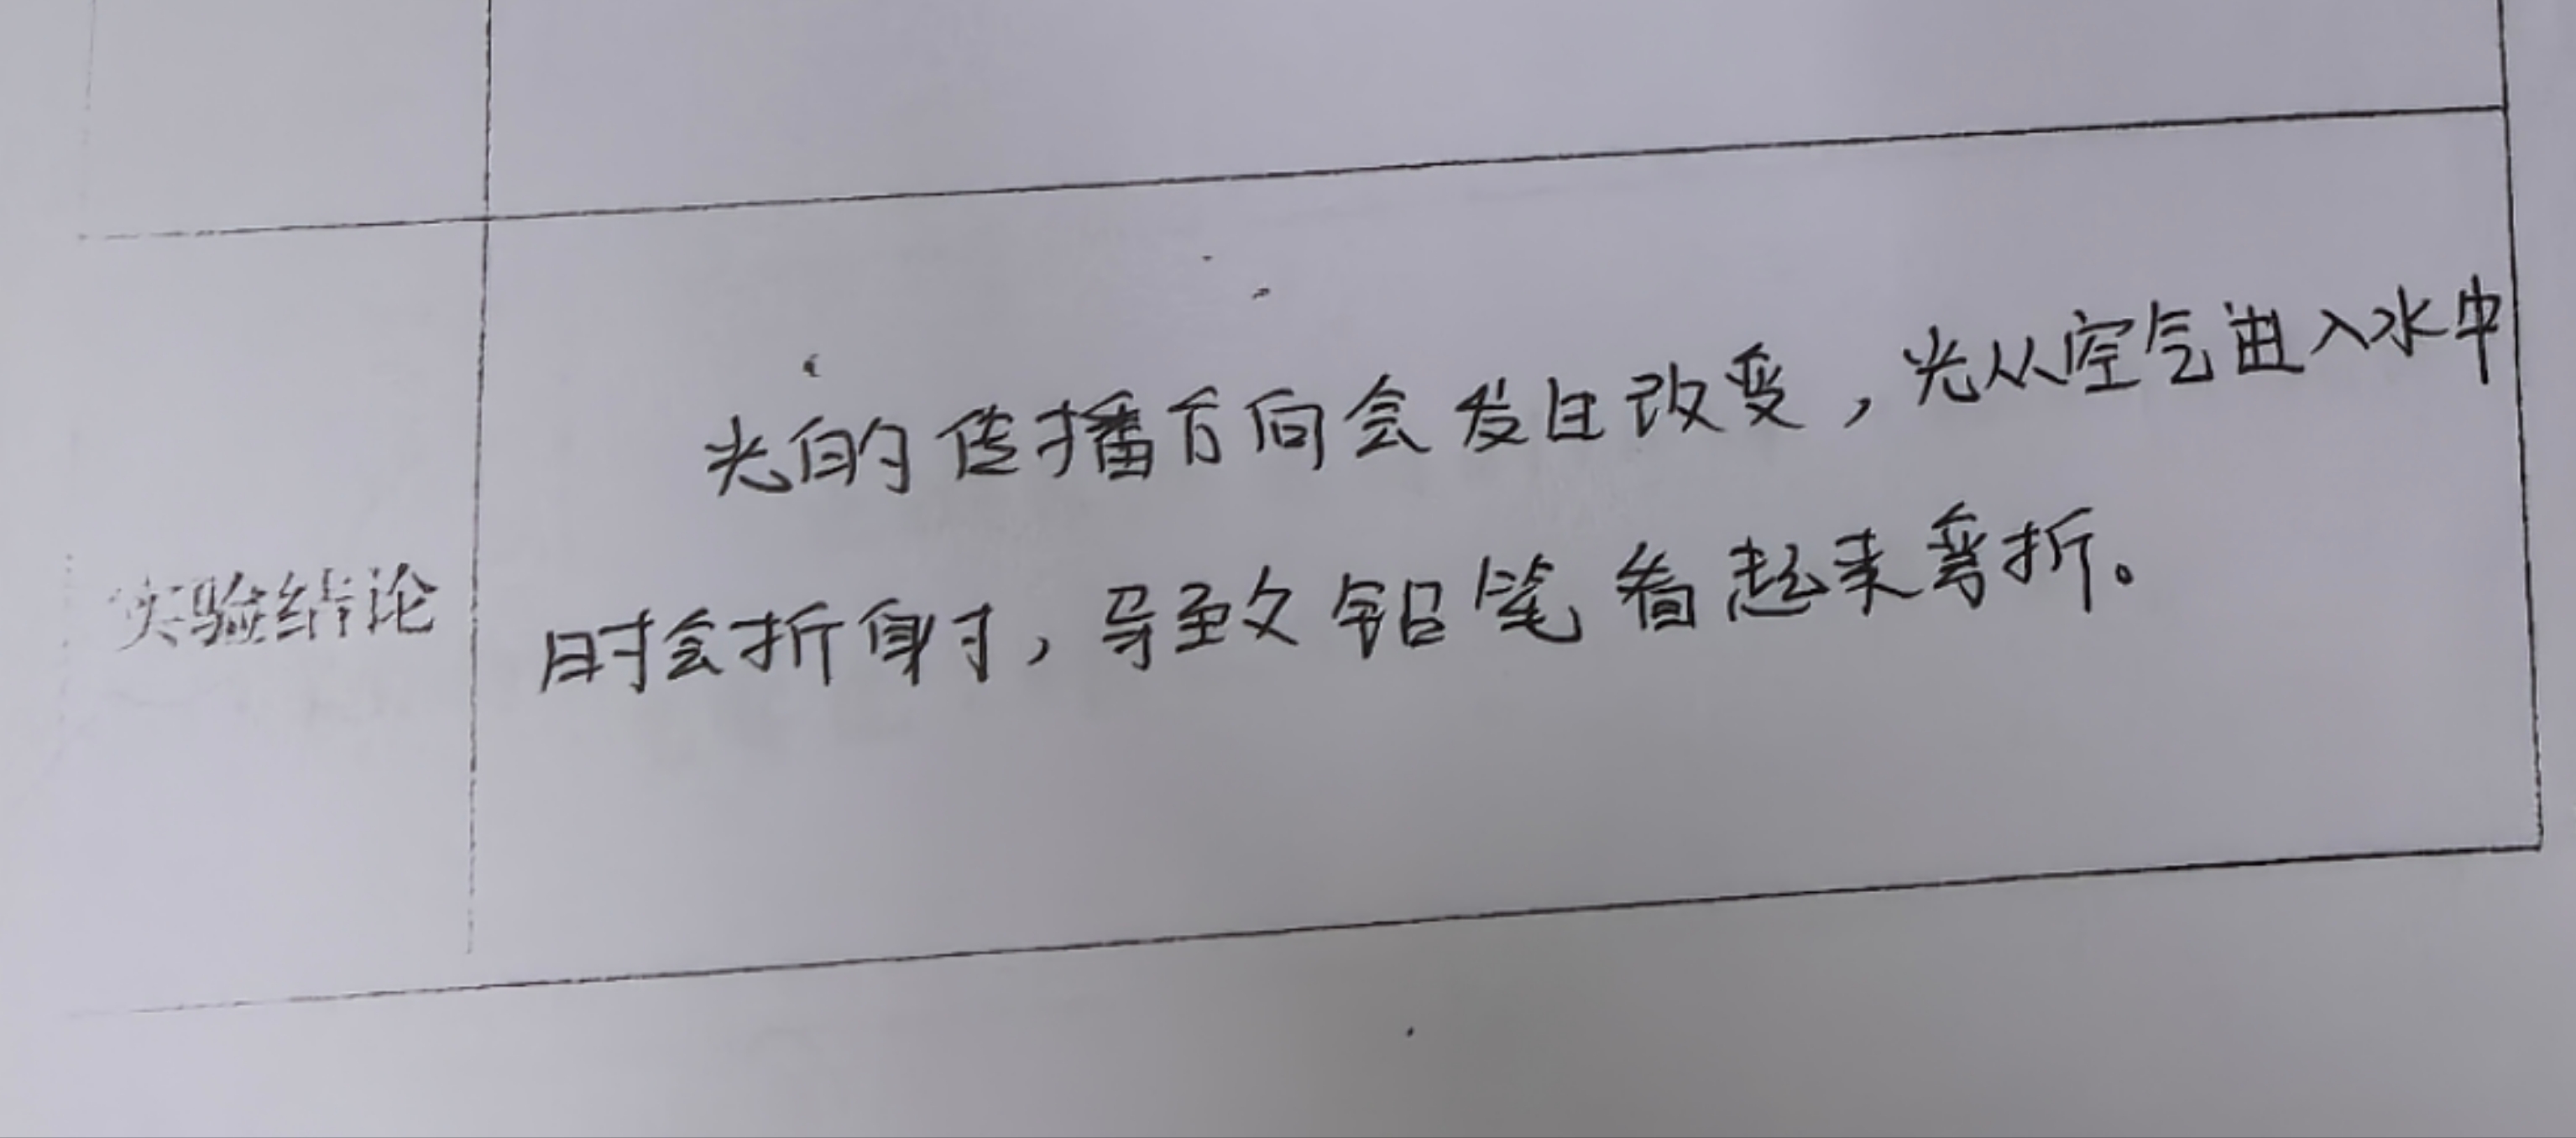 光的传播方向会发生改变，光从空气进入水中
实验结论
时会折射，导致铅笔看起来弯折。